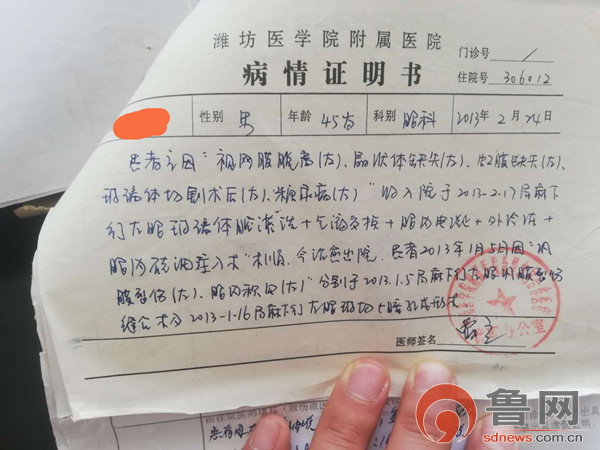 潍坊医学院附属医院
门诊号 /
病情证明书
住院号 306012
性别 男 年龄 45岁 科别 眼科 2013年2月24日
患者主因"视网膜脱离(左)、晶状体缺失(左)、虹膜缺失(左)、
玻璃体切割术后(左)、糖尿病" 收入院于2013-2.17局麻下
行左眼玻璃体腔灌洗+气液交换+眼内电凝+外冷冻+
眼内硅油注入术 术顺,今治愈出院,患者2013年1月5日因"巩
膜裂伤(左)、眼内积血(左)"分别于2013.1.5局麻行左眼巩膜裂伤
缝合术及2013-1-16局麻下行左眼玻切+瞳孔成形术
医师签名
办公室
鲁网
sdnews.com.cn